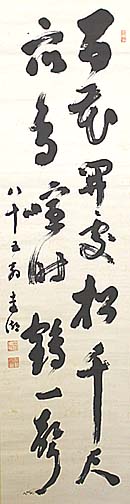 百花開處松千尺
衆鳥喧時鶴一聲
八十五翁